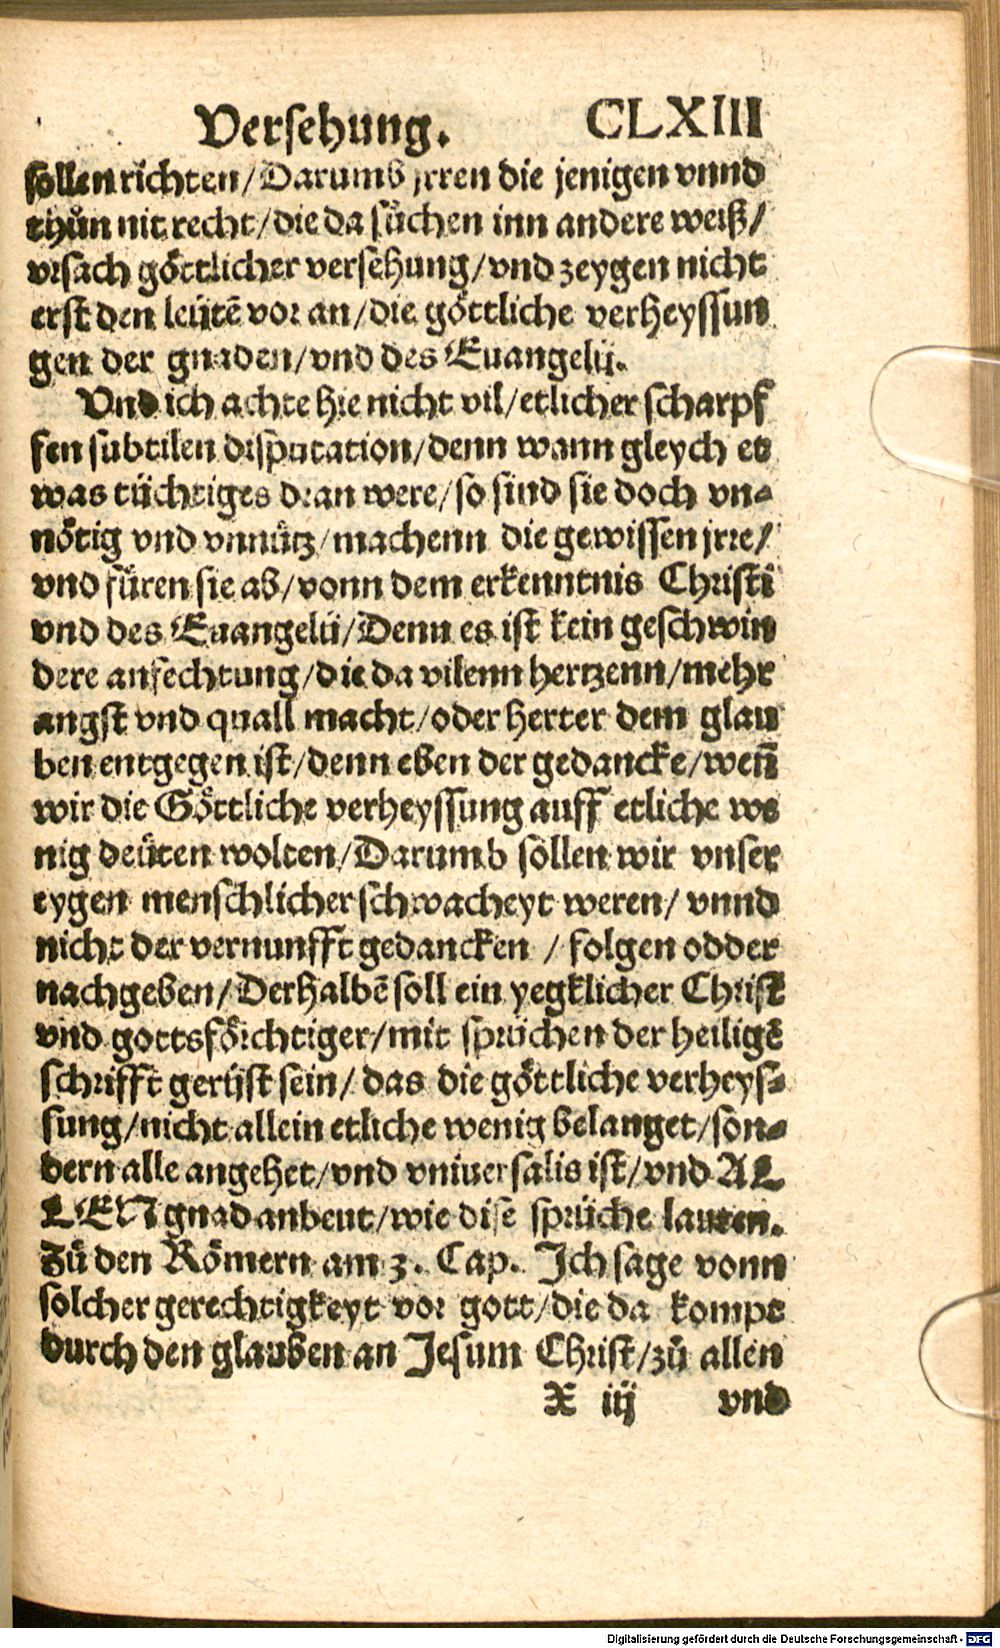 Versehung. CLXIII
sollen richten/Darumb jrren die jenigen vnnd
thůn nit recht/die da sůchen inn andere weiß/
vrsach göttlicher versehung/vnd zeygen nicht
erst den leütē vor an/die göttliche verheyssun
gen der gnaden/vnd des Euangelij.
Vnd ich achte hie nicht vil/etlicher scharpf
fen subtilen disputation/denn wann gleych et
was tüchtiges dran were/so sind sie doch vn⸗
nötig vnd vnnütz/machenn die gewissen jrre/
vnd füren sie ab/vonn dem erkenntnis Christi
vnd des Euangelij/Denn es ist kein geschwin
dere anfechtung/die da vilenn hertzenn/mehr
angst vnd quall macht/oder herter dem glau
ben entgegen ist/denn eben der gedancke/weñ
wir die Göttliche verheyssung auff etliche we
nig deüten wolten/Darumb söllen wir vnser
eygen menschlicher schwacheyt weren/vnnd
nicht der vernunfft gedancken / folgen odder
nachgeben/Derhalbē soll ein yegklicher Christ
vnd gottsförchtiger/mit sprüchen der heiligē
schrifft gerüst sein/das die göttliche verheys⸗
sung/nicht allein etliche wenig belanget/son⸗
dern alle angehet/vnd vniuersalis ist/vnd AL
LEN gnad anbeut/wie dise sprüche lauten.
Zů den Römern am 3. Cap. Ich sage vonn
solcher gerechtigkeyt vor gott/die da kompt
durch den glauben an Jesum Christ/zů allen
X iij vnd
Digitalisierung gefördert durch die Deutsche Forschungsgemeinschaft - DFG